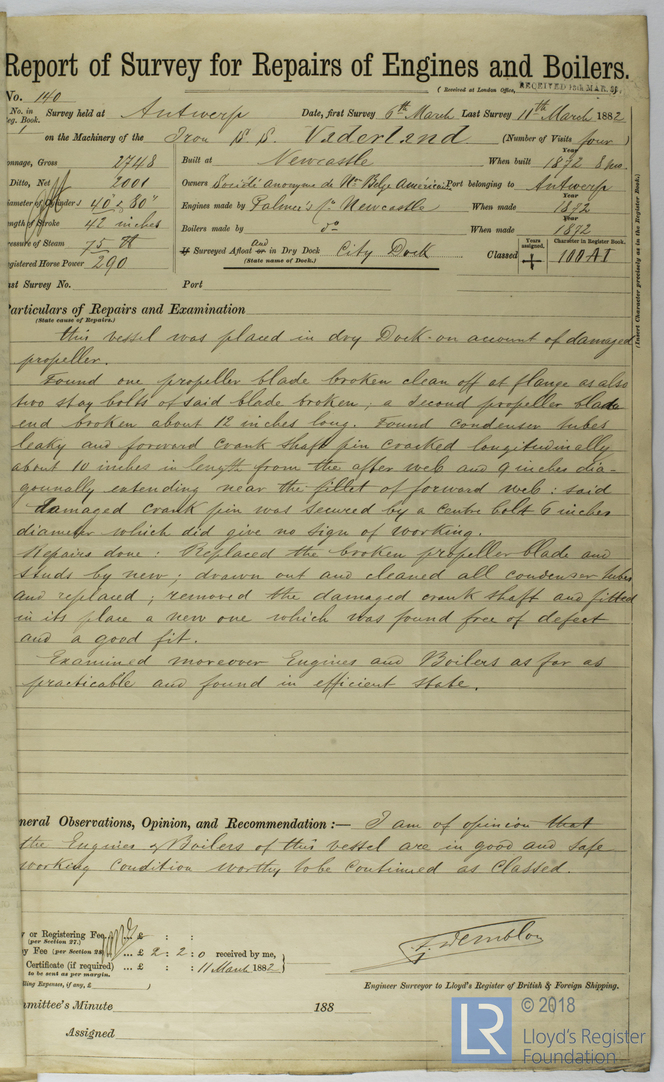 Report of Survey for Repairs of Engines and Boilers.
(Received at London Office, RECEIVED 13th MAR. 82
No. 140
No. in Survey held at Antwerp Date, first Survey 6th March Last Survey 11th March 1882
eg. Book.
on the Machinery of the Iron S. S. Vaderland (Number of Visits four)
onnage, Gross 2748 Built at Newcastle When built 1872 8 mo.
Ditto, Net 2001 Owners Société anonyme de Nn Belge Américaine Port belonging to Antwerp
iameter of Cylinders 40 & 80" Engines made by Palmer's Co Newcastle When made 1872
ength of Stroke 42 inches Boilers made by do When made 1872
ressure of Steam 75 lb If Surveyed Afloat and or in Dry Dock City Dock Classed 100 A1
(State name of Dock.)
Years assigned. Character in Register Book.
egistered Horse Power 290
ast Survey No. Port
(Insert Character precisely as in the Register Book.)
Particulars of Repairs and Examination
(State cause of Repairs.)
this vessel was placed in dry Dock on account of damaged
propeller.
Found one propeller blade broken clean off at flange as also
two stay bolts of said blade broken, a second propeller blade
end broken about 12 inches long. Found condenser tubes
leaky and forward crank shaft pin cracked longitudinally
about 10 inches in length from the after web and 9 inches dia-
gounally extending near the fillet of forward web: said
damaged crank pin was secured by a centre bolt 6 inches
diameter which did give no sign of working.
Repairs done: Replaced the broken propeller blade and
studs by new; drawn out and cleaned all condenser tubes
and replaced; removed the damaged crank shaft and fitted
in its place a new one which was found free of defect
and a good fit.
Examined moreover Engines and Boilers as far as
practicable and found in efficient state.
neral Observations, Opinion, and Recommendation:— I am of opinion that
the Engines & Boilers of this vessel are in good and safe
working condition worthy to be continued as Classed.
y or Registering Fee... £ : :
(per Section 27.)
y Fee (per Section 28) ... £ 2 : 2 : 0 received by me,
Certificate (if required) ... £ : : 11 March 1882
to be sent as per margin.
lling Expenses, if any, £ )
Engineer Surveyor to Lloyd's Register of British & Foreign Shipping.
mmittee's Minute 188
Assigned
LR © 2018
Lloyd's Register
Foundation